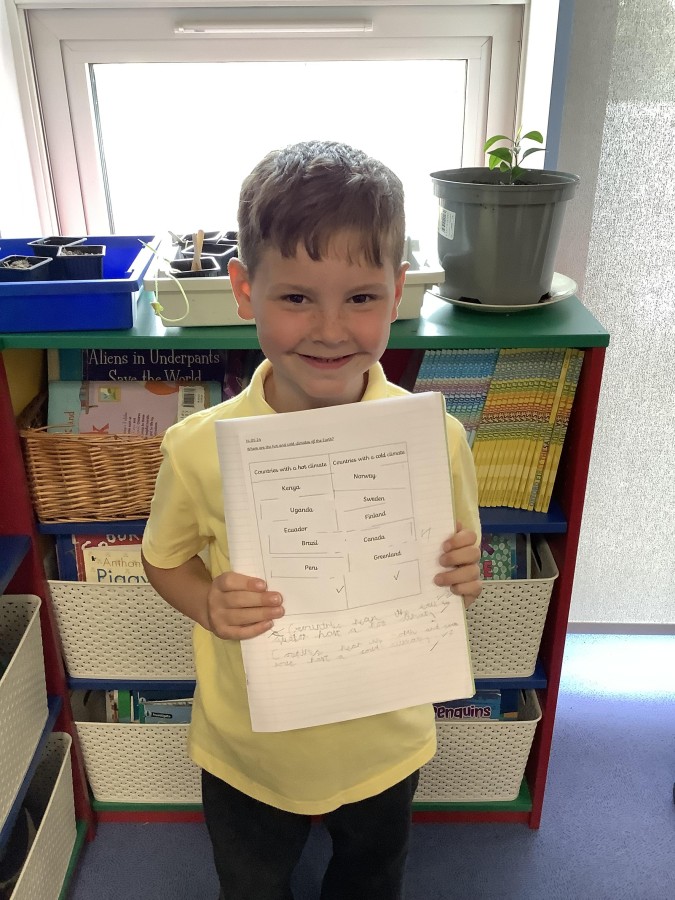 Aliens in Underpants
Save the World
Anthony
Piggy
Penguins
Where are the hot and cold climates of the Earth?
Countries with a hot climate Countries with a cold climate
Kenya Norway
Uganda Sweden
Ecuador Finland
Brazil Canada
Peru Greenland
Countries near the
have a hot climate
Countries near
have a cold climate